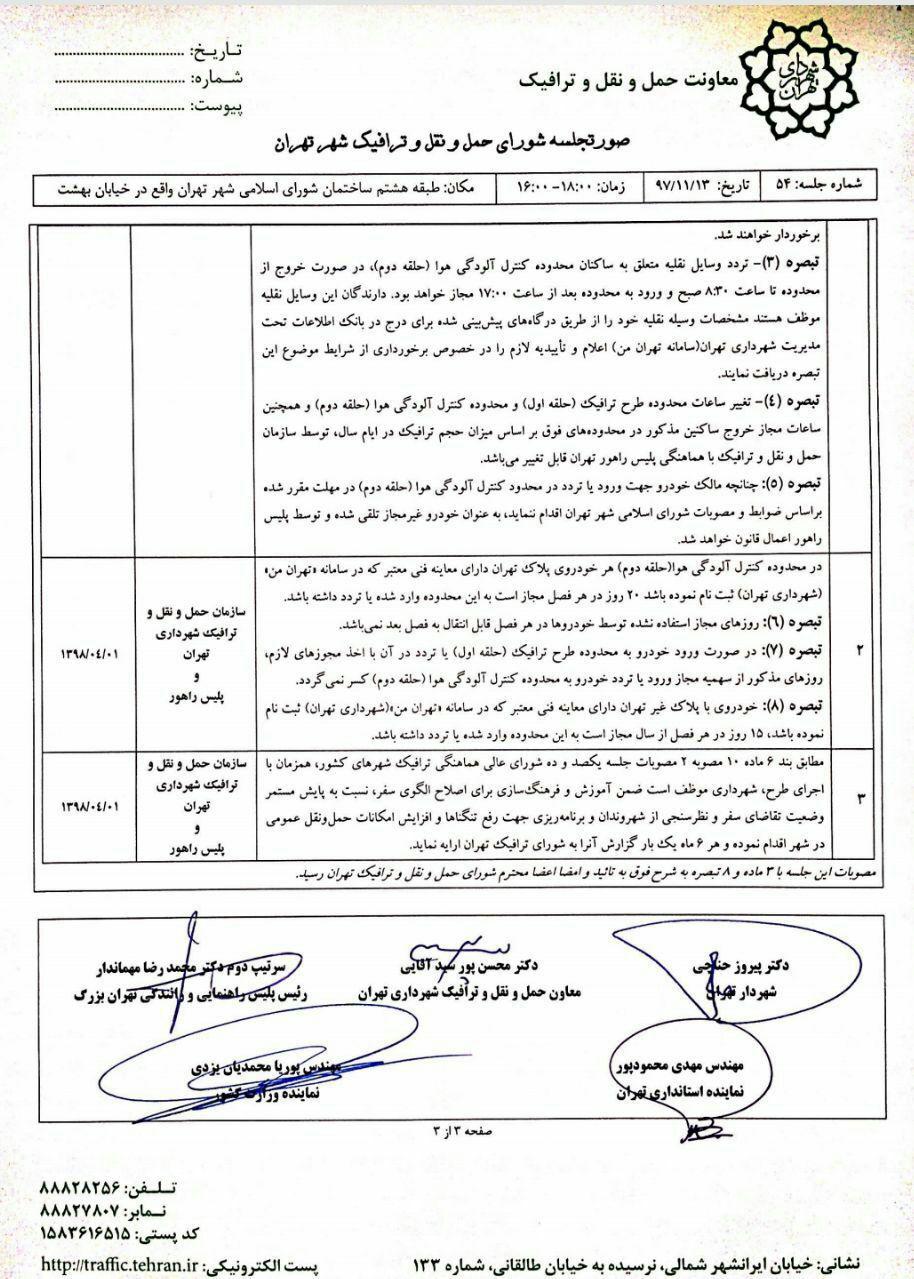 تاریخ: ................................
شماره: ................................
پیوست: ................................
شهرداری تهران
معاونت حمل و نقل و ترافیک
صورتجلسه شورای حمل و نقل و ترافیک شهر تهران
شماره جلسه: ۵۴
تاریخ: ۹۷/۱۱/۱۳
زمان: ۱۸:۰۰-۱۶:۰۰
مکان: طبقه هشتم ساختمان شورای اسلامی شهر تهران واقع در خیابان بهشت
برخوردار خواهند شد.
تبصره (۳)- تردد وسایل نقلیه متعلق به ساکنان محدوده کنترل آلودگی هوا (حلقه دوم)، در صورت خروج از
محدوده تا ساعت ۸:۳۰ صبح و ورود به محدوده بعد از ساعت ۱۷:۰۰ مجاز خواهد بود. دارندگان این وسایل نقلیه
موظف هستند مشخصات وسیله نقلیه خود را از طریق درگاه‌های پیش‌بینی شده برای درج در بانک اطلاعات تحت
مدیریت شهرداری تهران(سامانه تهران من) اعلام و تأییدیه لازم را در خصوص برخورداری از شرایط موضوع این
تبصره دریافت نمایند.
تبصره (۴)- تغییر ساعات محدوده طرح ترافیک (حلقه اول) و محدوده کنترل آلودگی هوا (حلقه دوم) و همچنین
ساعات مجاز خروج ساکنین مذکور در محدوده‌های فوق بر اساس میزان حجم ترافیک در ایام سال، توسط سازمان
حمل و نقل و ترافیک با هماهنگی پلیس راهور تهران قابل تغییر می‌باشد.
تبصره (۵): چنانچه مالک خودرو جهت ورود یا تردد در محدود کنترل آلودگی هوا (حلقه دوم) در مهلت مقرر شده
براساس ضوابط و مصوبات شورای اسلامی شهر تهران اقدام ننماید، به عنوان خودرو غیرمجاز تلقی شده و توسط پلیس
راهور اعمال قانون خواهد شد.
۲
در محدوده کنترل آلودگی هوا(حلقه دوم) هر خودروی پلاک تهران دارای معاینه فنی معتبر که در سامانه «تهران من»
(شهرداری تهران) ثبت نام نموده باشد ۲۰ روز در هر فصل مجاز است به این محدوده وارد شده یا تردد داشته باشد.
تبصره (۶): روزهای مجاز استفاده نشده توسط خودروها در هر فصل قابل انتقال به فصل بعد نمی‌باشد.
تبصره (۷): در صورت ورود خودرو به محدوده طرح ترافیک (حلقه اول) یا تردد در آن با اخذ مجوزهای لازم،
روزهای مذکور از سهمیه مجاز ورود یا تردد خودرو به محدوده کنترل آلودگی هوا (حلقه دوم) کسر نمی‌گردد.
تبصره (۸): خودروی با پلاک غیر تهران دارای معاینه فنی معتبر که در سامانه «تهران من»(شهرداری تهران) ثبت نام
نموده باشد، ۱۵ روز در هر فصل از سال مجاز است به این محدوده وارد شده یا تردد داشته باشد.
سازمان حمل و نقل و
ترافیک شهرداری
تهران
و
پلیس راهور
۱۳۹۸/۰۴/۰۱
۳
مطابق بند ۶ ماده ۱۰ مصوبه ۲ مصوبات جلسه یکصد و ده شورای عالی هماهنگی ترافیک شهرهای کشور، همزمان با
اجرای طرح، شهرداری موظف است ضمن آموزش و فرهنگ‌سازی برای اصلاح الگوی سفر، نسبت به پایش مستمر
وضعیت تقاضای سفر و نظرسنجی از شهروندان و برنامه‌ریزی جهت رفع تنگناها و افزایش امکانات حمل‌ونقل عمومی
در شهر اقدام نموده و هر ۶ ماه یک بار گزارش آنرا به شورای ترافیک تهران ارایه نماید.
سازمان حمل و نقل و
ترافیک شهرداری
تهران
و
پلیس راهور
۱۳۹۸/۰۴/۰۱
مصوبات این جلسه با ۳ ماده و ۸ تبصره به شرح فوق به تائید و امضا اعضا محترم شورای حمل و نقل و ترافیک تهران رسید.
دکتر پیروز حناچی
شهردار تهران
دکتر محسن پور سید آقایی
معاون حمل و نقل و ترافیک شهرداری تهران
سرتیپ دوم دکتر محمد رضا مهماندار
رئیس پلیس راهنمایی و رانندگی تهران بزرگ
مهندس مهدی محمودپور
نماینده استانداری تهران
مهندس پوریا محمدیان یزدی
نماینده وزارت کشور
صفحه ۳ از ۳
تـلـفن: ۸۸۸۲۸۲۵۶
نـمابر: ۸۸۸۲۷۸۰۷
کد پستی: ۱۵۸۳۶۱۶۵۱۵
نشانی: خیابان ایرانشهر شمالی، نرسیده به خیابان طالقانی، شماره ۱۳۳
پست الکترونیکی: http://traffic.tehran.ir